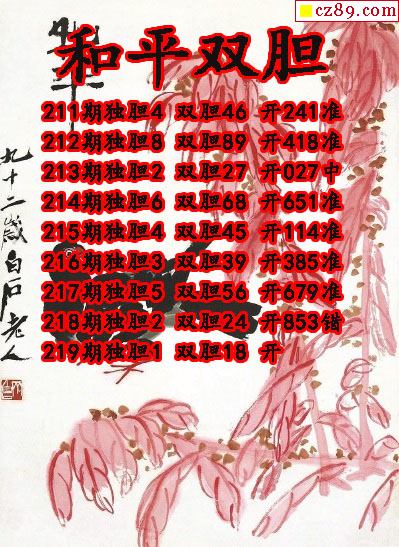 cz89.com
和平双胆
211期独胆4 双胆46 开241准
212期独胆8 双胆89 开418准
213期独胆2 双胆27 开027中
214期独胆6 双胆68 开651准
215期独胆4 双胆45 开114准
216期独胆3 双胆39 开385准
217期独胆5 双胆56 开679准
218期独胆2 双胆24 开853错
219期独胆1 双胆18 开
九十二歲白石老人